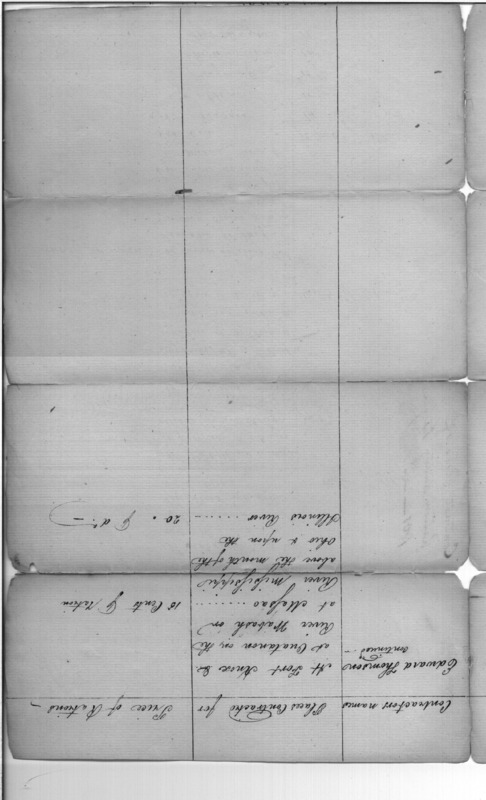 Contractors names
Places Contracted for
Prices of Rations
Edward Thomson
continued
At Fort Knox &
at Ouatanon on the
River Wabash
at Massac ........ 15 Cents ⅌ Ration
River Missisippi
above the mouth of the
Ohio & upon the
Illinois River ........ 20. ⅌ do. —